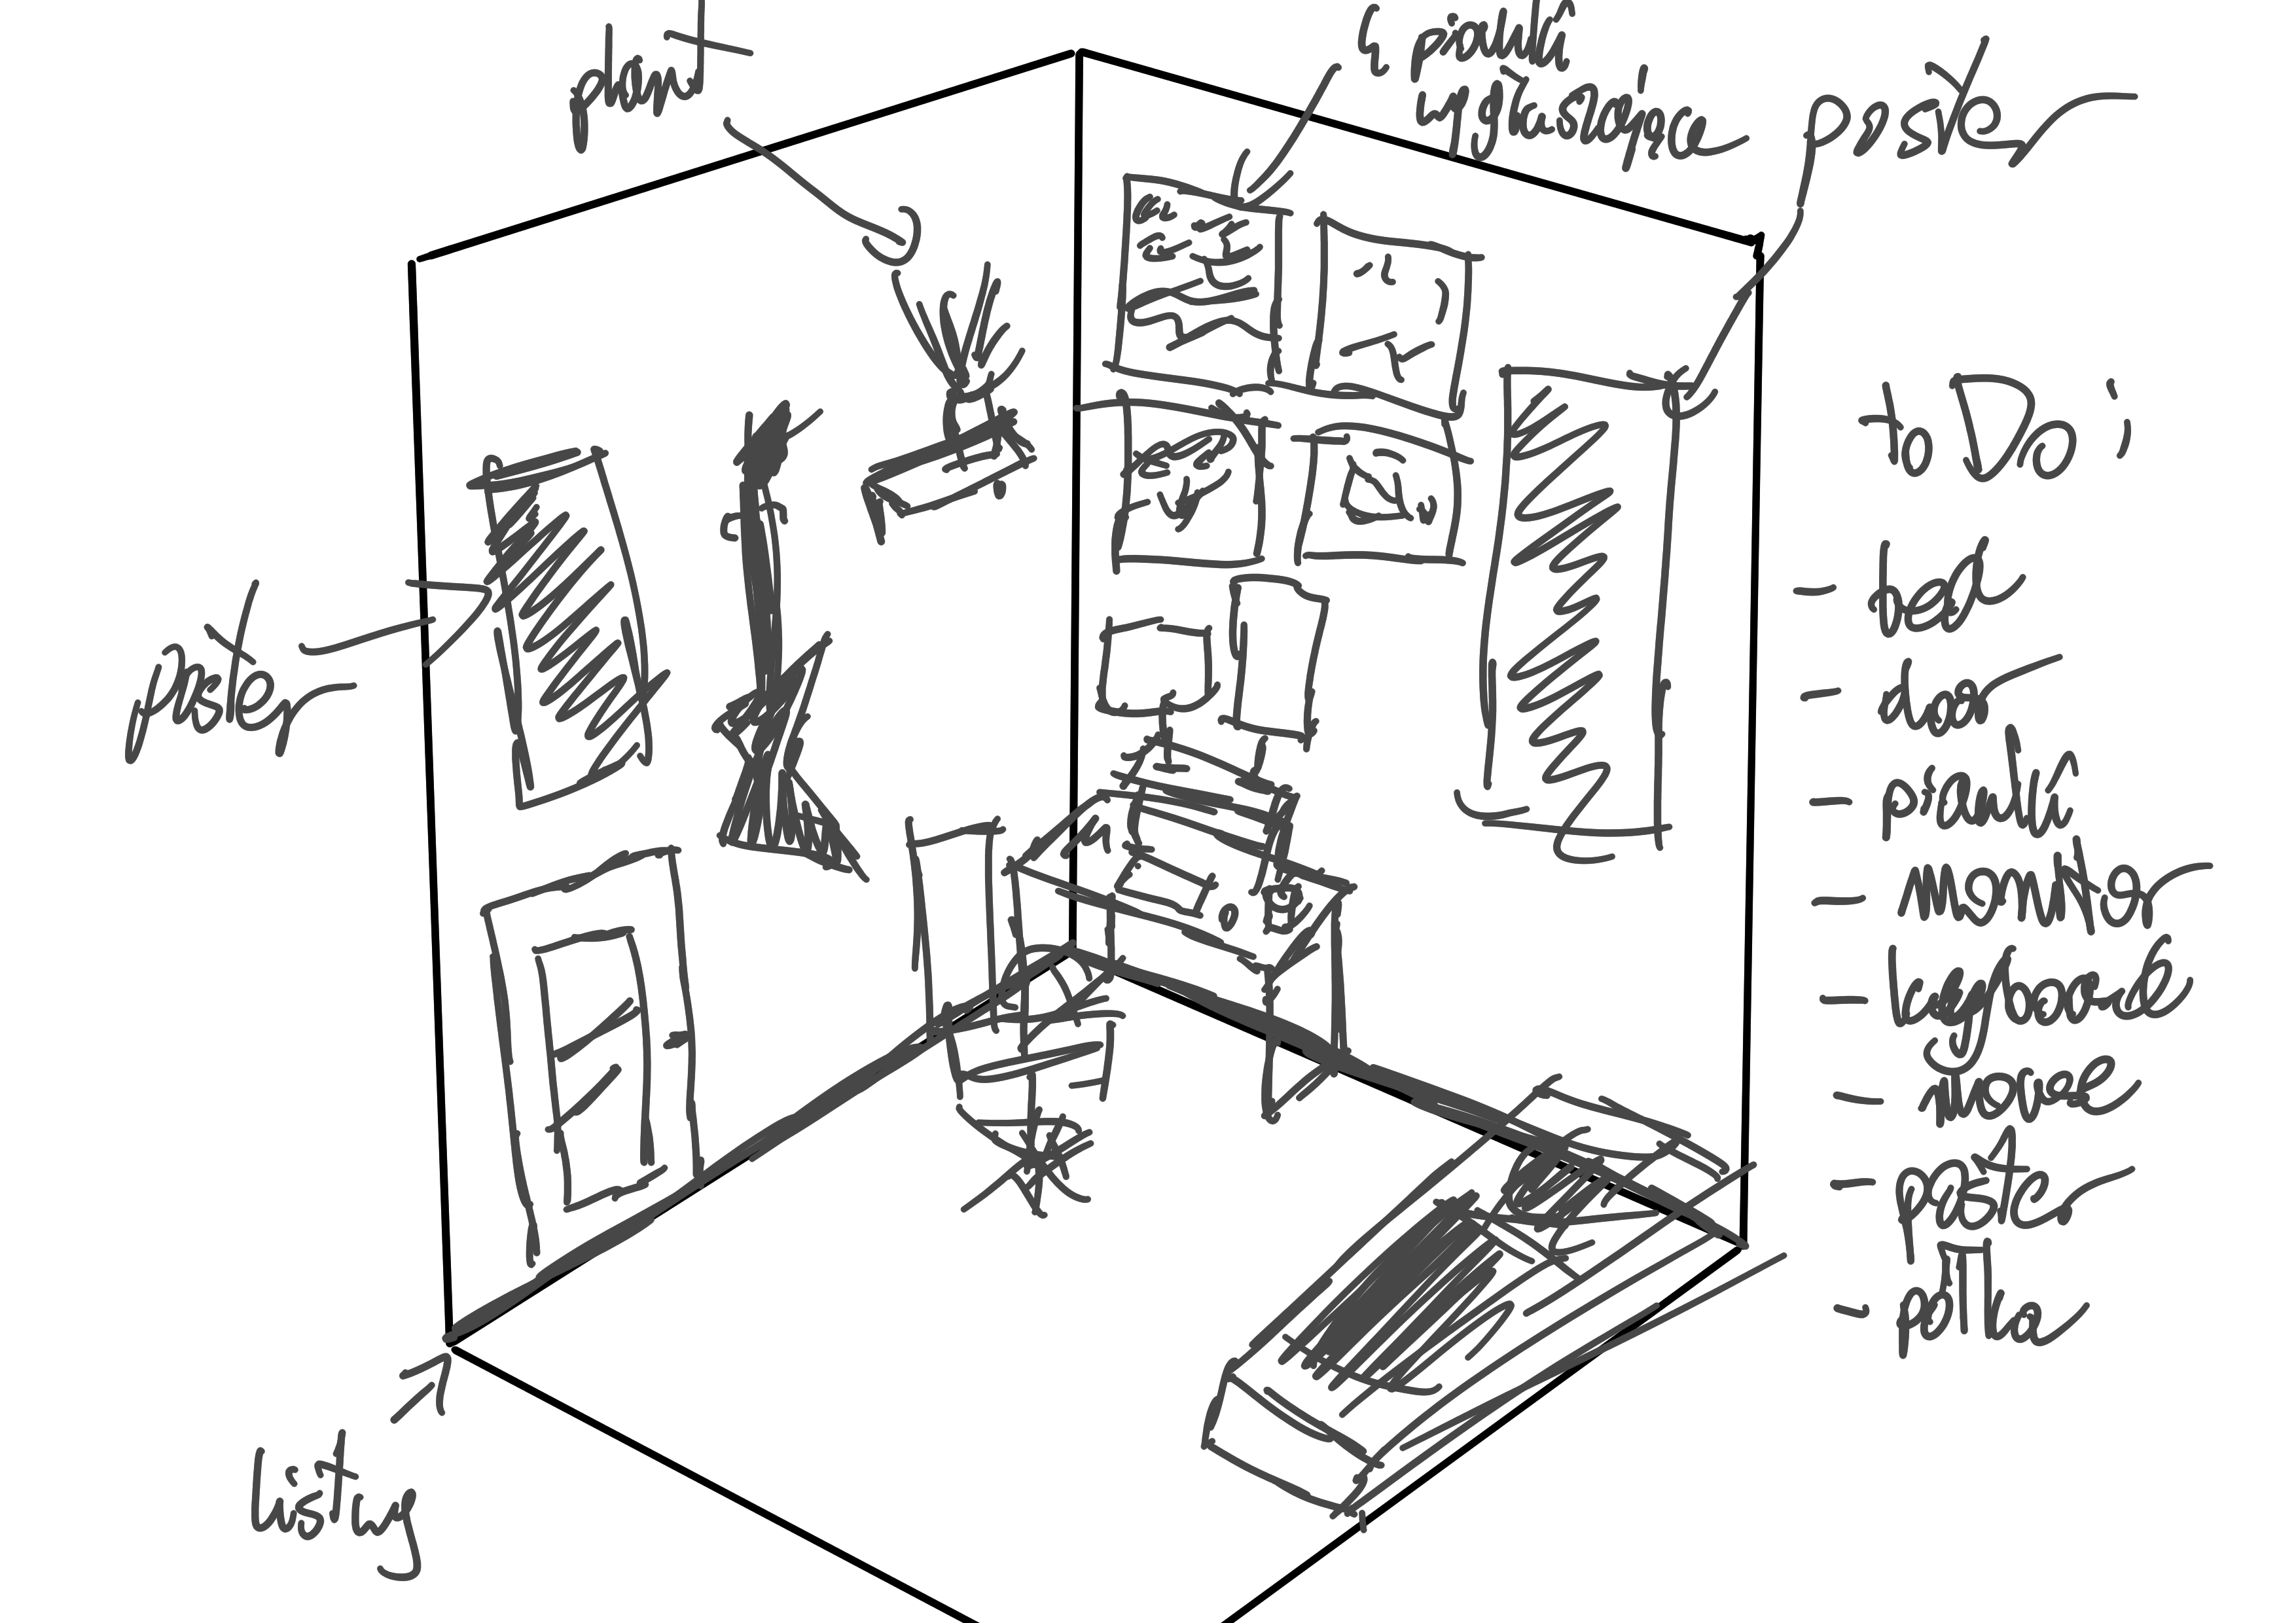 plant
4 pianki
wytłuszające
poster
poster
to Do:
- bed
- door
- pianki
- monitor
- keyboard
- mouse
- poster
- półka
listwy